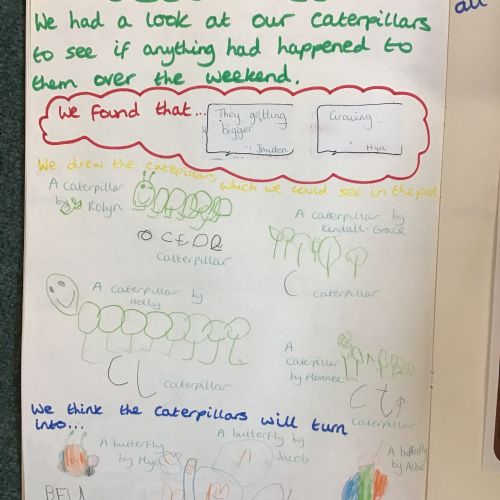 We had a look at our caterpillars
to see if anything had happened to
them over the weekend.
We found that...
They getting
bigger
Jayden
Growing
Mya
We drew the catepillars which we could see in the pot.
A caterpillar
by Robyn
caterpillar
A caterpillar by
Kendall-Grace
C
caterpillar
A caterpillar by
Holly
caterpillar
A
caterpillar
by Florence
caterpillar
We think the caterpillars will turn
into...
A butterfly
by Mya
A butterfly by
Jacob
A butterfly
by Albe
BELA
all